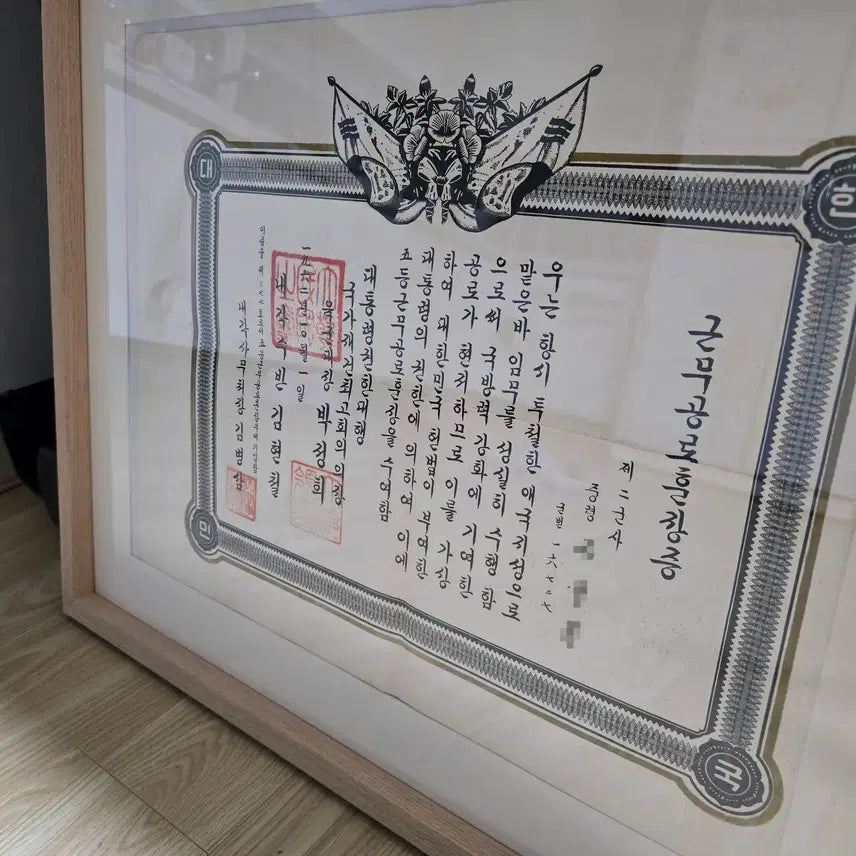 대
한
민
국
근무공로훈장증
제二군사
중령
군번
우는 항시 투철한 애국지성으로
맡은바 임무를 성실히 수행함
으로써 국방력 강화에 기여한
공로가 현저하므로 이를 가상
하여 대한민국 헌법이 부여한
대통령의 권한에 의하여 이에
등근무공로훈장을 수여함
대통령권한대행
국가재건최고회의의장
육군대장 박정희
一九六二년 一〇월 一일
내각수반 김현철
이증을 제
내각사무처장 김병삼